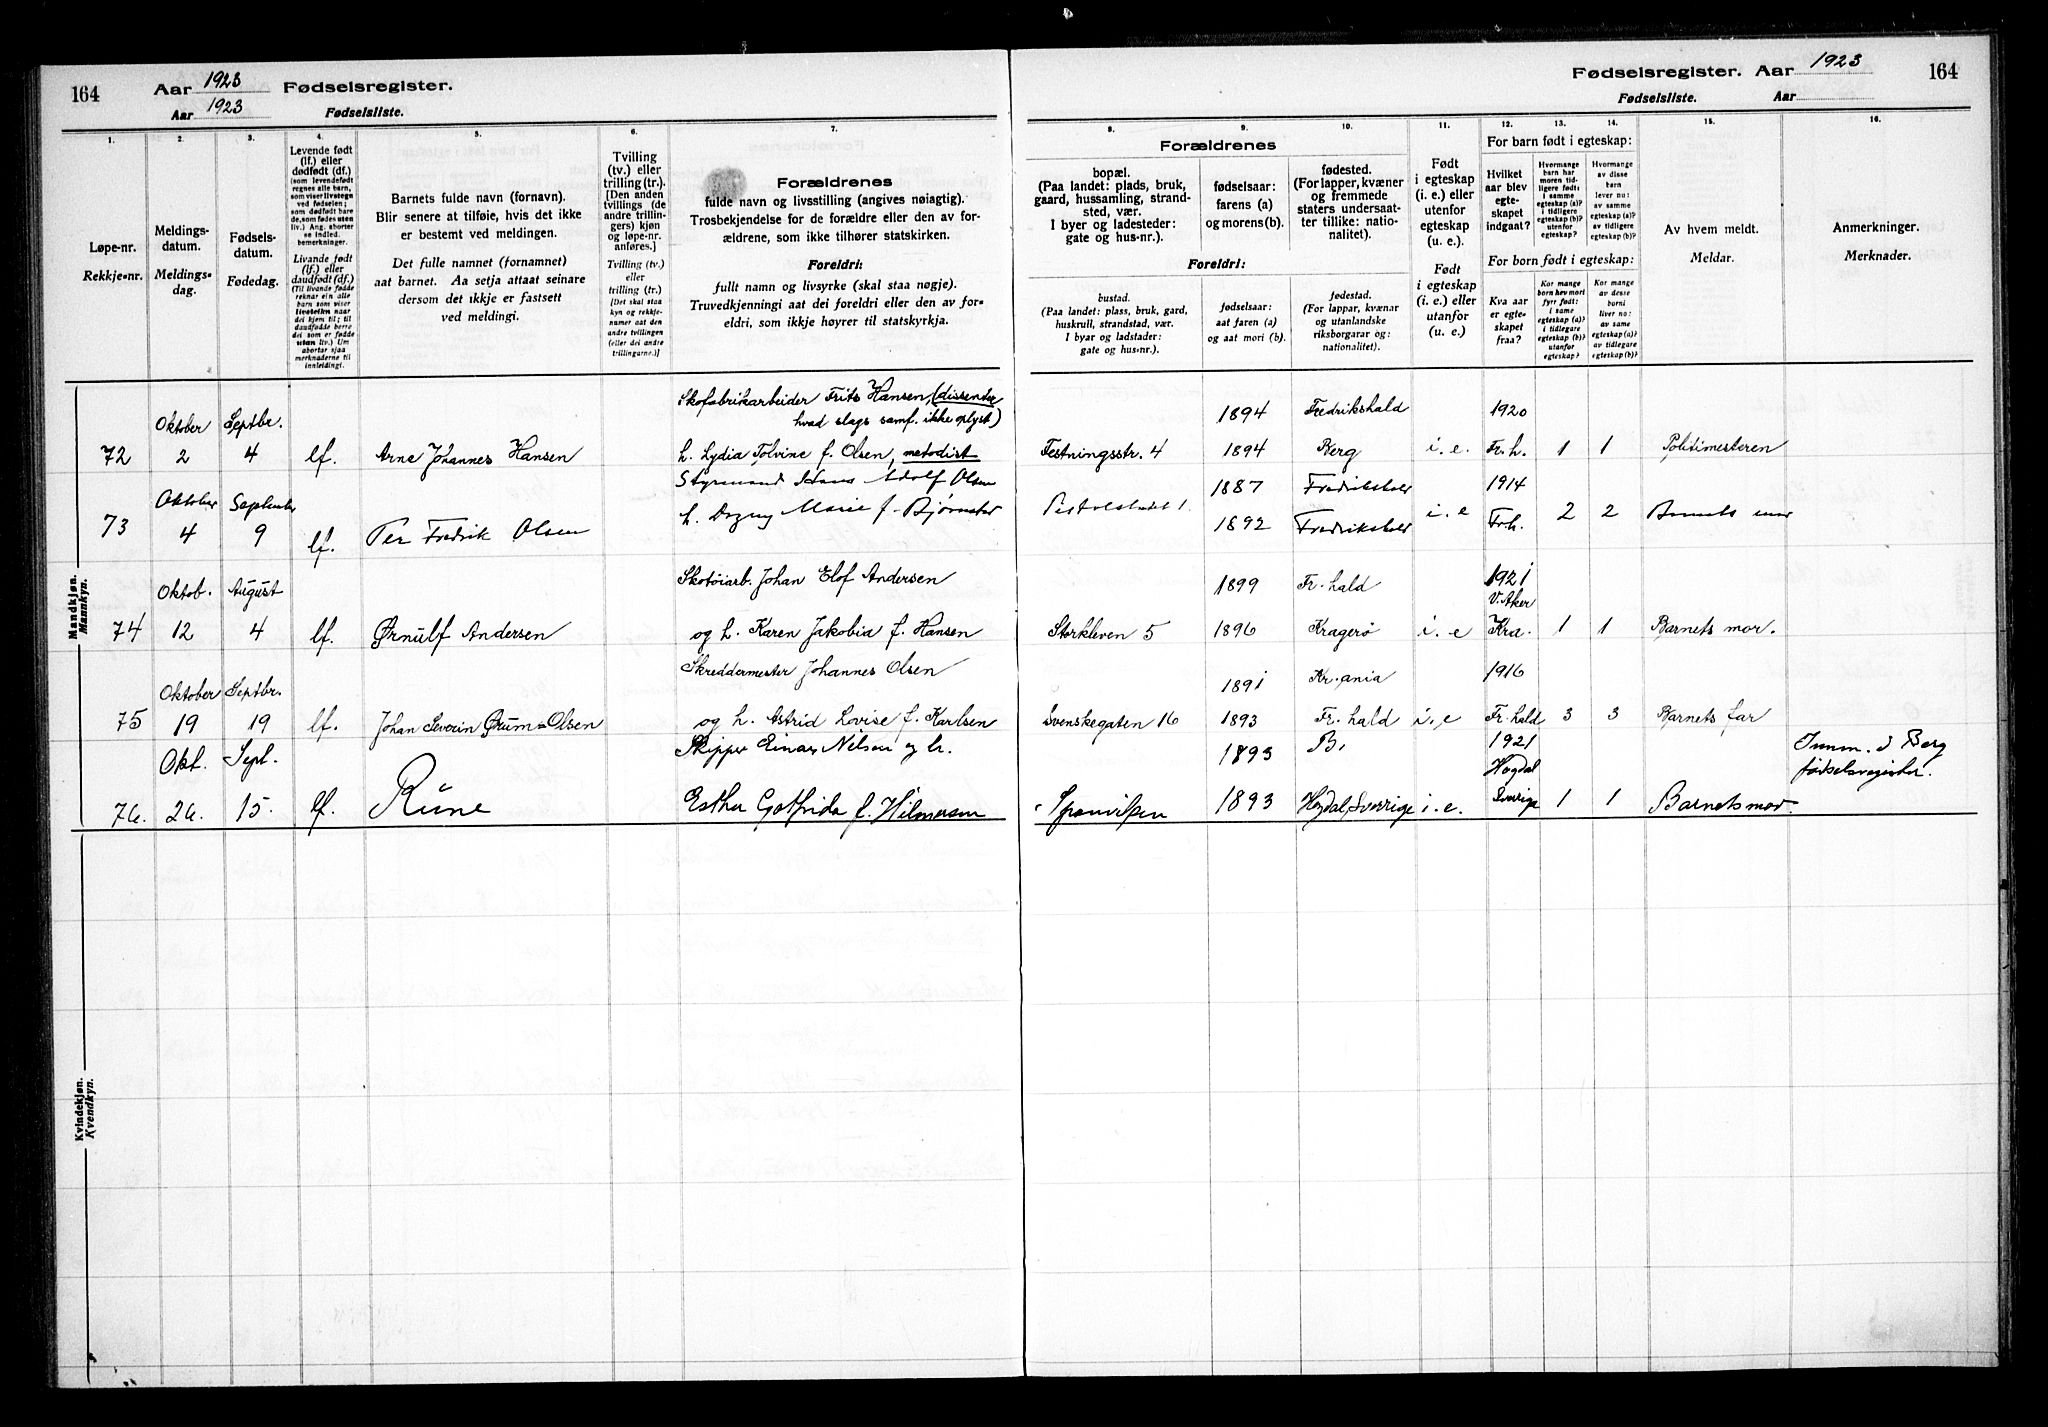 164 Aar 1923 Fødselsregister.
Aar 1923 Fødselsliste.
Fødselsregister. Aar 1923 164
Fødselsliste. Aar
1.
Løpe-nr.
Rekkje-nr.
2.
Meldings-
datum.
Meldings-
dag.
3.
Fødsels-
datum.
Fødedag.
4.
Levende født
(lf.) eller
dødfødt (df.)
(som levendefødt
regnes alle barn,
som viser livstegn
ved fødselen;
som dødfødt bare
de, som fødes uten
liv.) Ang. aborter
se indled.
bemerkninger.
Livande født
(lf.) eller
daudfødt (df.)
(Til livande fødde
reknar ein alle
barn som viser
livsteikn naar
dei kjem til; til
daudfødde berre
dei som er fødde
utan liv.) Um
abortar sjaa
merknaderne til
innleidingi.
5.
Barnets fulde navn (fornavn).
Blir senere at tilføie, hvis det ikke
er bestemt ved meldingen.
Det fulle namnet (fornamnet)
aat barnet. Aa setja attaat seinare
dersom det ikkje er fastsett
ved meldingi.
6.
Tvilling
(tv.) eller
trilling (tr.).
[Den anden
tvillings (de
andre trillin-
gers) kjøn
og løpe-nr.
anføres.]
Tvilling (tv.)
eller
trilling (tr.)
[Det skal staa
kyn og rekkje-
numer aat den
andre tvillingen
(eller dei andre
trillingarne.)]
7.
Forældrenes
fulde navn og livsstilling (angives nøiagtig).
Trosbekjendelse for de forældre eller den av for-
ældrene, som ikke tilhører statskirken.
Foreldri:
fullt namn og livsyrke (skal staa nøgje).
Truvedkjenningi aat dei foreldri eller den av for-
eldri, som ikkje høyrer til statskyrkja.
Forældrenes
8.
bopæl.
(Paa landet: plads, bruk,
gaard, hussamling, strand-
sted, vær.
I byer og ladesteder:
gate og hus-nr.).
9.
fødselsaar:
farens (a)
og morens (b).
10.
fødested.
(For lapper, kvæner
og fremmede
staters undersaat-
ter tillike: natio-
nalitet).
Foreldri:
bustad.
(Paa landet: plass, bruk, gard,
huskrull, strandstad, vær.
I byar og ladstader:
gate og hus-nr.).
fødselsaar:
aat faren (a)
og aat mori (b).
fødestad.
(For lappar, kvænar
og utanlandske
riksborgarar og:
nationalitet).
11.
Født
i egteskap
(i. e.) eller
utenfor
egteskap
(u. e.).
Født
i egteskap
(i. e.) eller
utanfor
(u. e.).
For barn født i egteskap:
12.
Hvilket
aar blev
egte-
skapet
indgaat?
13.
Hvormange
barn har
moren tid-
ligere født:
i samme
egteskap (a)?
i tidligere
egteskap (b)?
utenfor
egteskap?
14.
Hvormange
av disse
barn
lever nu:
av samme
egteskap (a)?
av tidligere
egteskap (b)?
For born født i egteskap:
Kva aar
er egte-
skapet
fraa?
Kor mange
born hev mori
fyrr født:
i same
egteskap (a)?
i tidlegare
egteskap (b)?
utanfor
egteskap?
Kor mange
av desse
borni
liver no:
av same
egteskap (a)?
av tidlegare
egteskap (b)?
15.
Av hvem meldt.
Meldar.
16.
Anmerkninger.
Merknader.
Mandkjøn.
Mannkyn.
Oktober Septbr. Skofabrikarbeider Frits Hansen (dissenter 1894 Fredrikshald 1920
hvad slags samf. ikke oplyst)
72 2 4 lf. Arne Johannes Hansen h. Lydia Tolvine f. Olsen, metodist Festningsstr. 4 1894 Berg i. e. Fr.h. 1 1 Politimesteren
Oktober September Styrmand Hans Adolf Olsen 1887 Fredrikshald 1914
73 4 9 lf. Per Fredrik Olsen h. Dagny Marie f. 1892 Fredrikshald i. e Frh. 2 2 Barnets mor
Oktob. August Skotøiarb. Johan Elof Andersen 1899 Fr.hald 1921
V. Aker
74 12 4 lf. Ørnulf Andersen og h. Karen Jakobia f. Hansen Storkleven 5 1896 Kragerø i. e Kra. 1 1 Barnets mor.
Oktober Septbr. Skreddermester Johannes Olsen 1891 Kr.ania 1916
75 19 19 lf. Johan Severin Ørum-Olsen og h. Astrid Lovise f. Karlsen Svenskegaten 16 1893 Fr.hald i. e Fr.hald 3 3 Barnets far
Okt. Sept. Skipper Einar Nilsen og h. 1893 B. 1921 Innm. i Berg
Hogdal fødselsregister.
76. 26. 15. lf. Rune Esther Gotfrida f. Hilmersen 1893 Hogdal, Sverige i. e. Sverige 1 1 Barnets mor.
Kvindekjøn.
Kvendkyn.